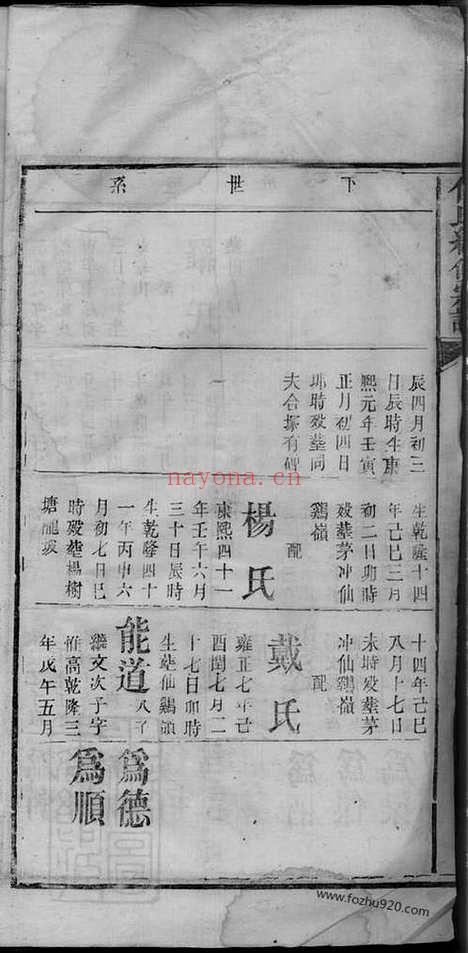 下世系
辰四月初三
日辰時生康
熙元年壬寅
正月初四日
時歿塟同
夫合塚有碑
生乾隆十四
年己巳三月
初二日卯時
歿塟茅冲仙
鷄嶺
配
楊氏
康熙四十一
年壬午六月
三十日辰時
生乾隆四十
一年丙申六
月初七日巳
時歿塟楊樹
塘
十四年己巳
八月十七日
未時歿塟茅
冲仙鷄嶺
配
戴氏
雍正七年己
酉閏七月二
十七日卯時
生塟仙鷄嶺
能道
文次子字
惟高乾隆三
年戊午五月
為德
為順
nayona.cn
www.fozhu920.com